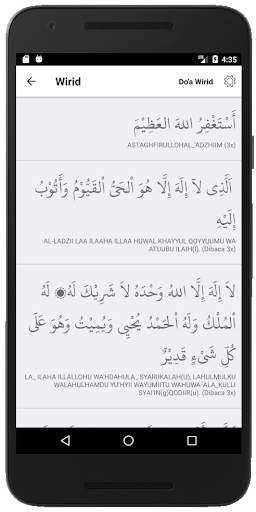 4:35
Wirid
Do'a Wirid
أَسْتَغْفِرُ اللهَ العَظِيْمَ
ASTAGHFIRULLOHAL_ADZHIIM (3x)
اَلَّذِى لاَ إِلَهَ إِلَّا هُوَ اْلحَيُّ اْلقَيُّوْمُ وَأَتُوْبُ
إِلَيْهِ
AL-LADZII LAA ILAAHA ILLAA HUWAL KHAYYUL QOYYUUMU WA
ATUUBU ILAIH(I). (Dibaca 3x)
لاَ إِلَهَ إِلَّا اللهُ وَحْدَهُ لاَ شَرِيْكَ لَهُ ۞ لَهُ
اْلمُلْكُ وَلَهُ اْلحَمْدُ يُحْيِي وَيُمِيْتُ وَهُوَ عَلَى
كُلِّ شَيْءٍ قَدِيْرٌ
LA_ ILAHA ILLALLOHU WA'HDAHULA_ SYARIIKALAH(U), LAHULMULKU
WALAHULHAMDU YU'HYII WAYUMIITU WAHUWA 'ALA_KULLI
SYAI'IN(g)QODIIR(u). (Dibaca 3x)